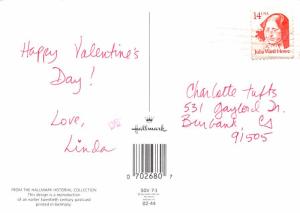 14¢ USA
Julia Ward Howe
Happy Valentine's
Day!
Love,
Linda
Charlotte Tufts
531 Gaylord Dr.
Burbank, CA
91505
Hallmark
0 702680 7
FROM THE HALLMARK HISTORICAL COLLECTION
This design is a reproduction
of an earlier twentieth century postcard
printed in Germany.
50V 7-3
02-44